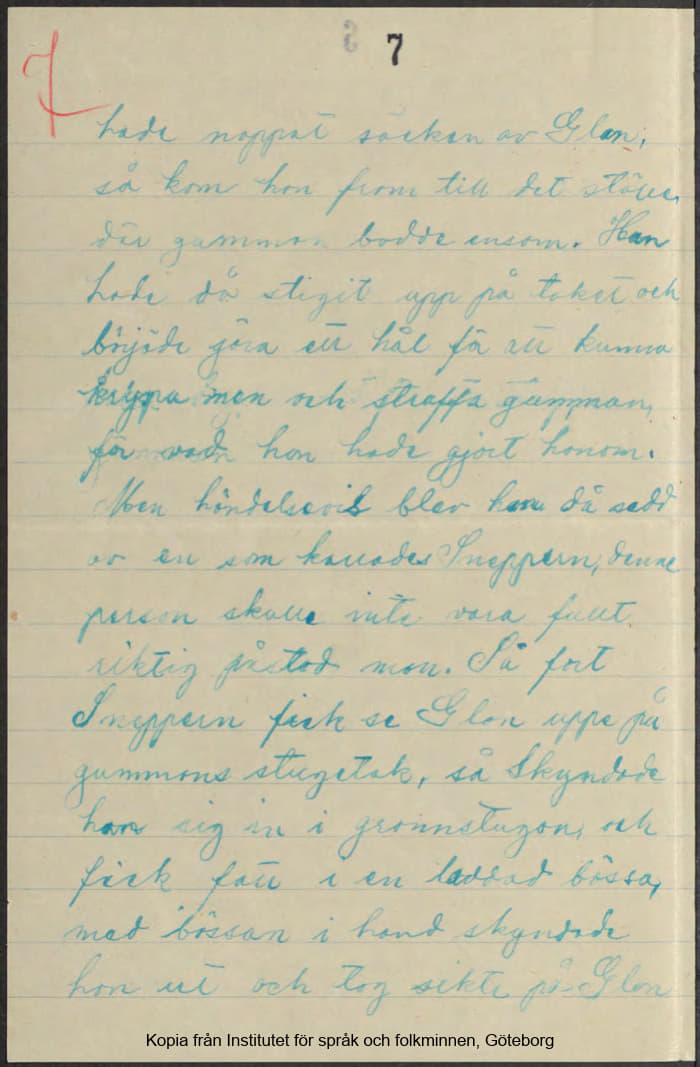 7
7
hade nappat säcken av Glan,
så kom han fram till det ställe,
där gumman bodde ensam. Han
hade då stigit upp på taket och
började göra ett hål för att kunna
krypa men och straffa gumman,
för vad hon hade gjort honom.
Men händelsevis blev han då sedd
av en som kallades Sneppern, denne
person skulle inte vara fullt
riktig påstod man. Så fort
Sneppern fick se Glan uppe på
gummans stugetak, så skyndade
han sig in i grannstugan, och
fick fatt i en laddad bössa,
med bössan i hand skyndade
han ut och tog sikte på Glan
Kopia från Institutet för språk och folkminnen, Göteborg